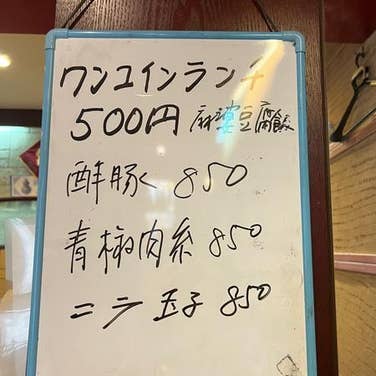 ワンコインランチ
500円 麻婆豆腐飯
酢豚 850
青椒肉糸 850
ニラ玉子 850